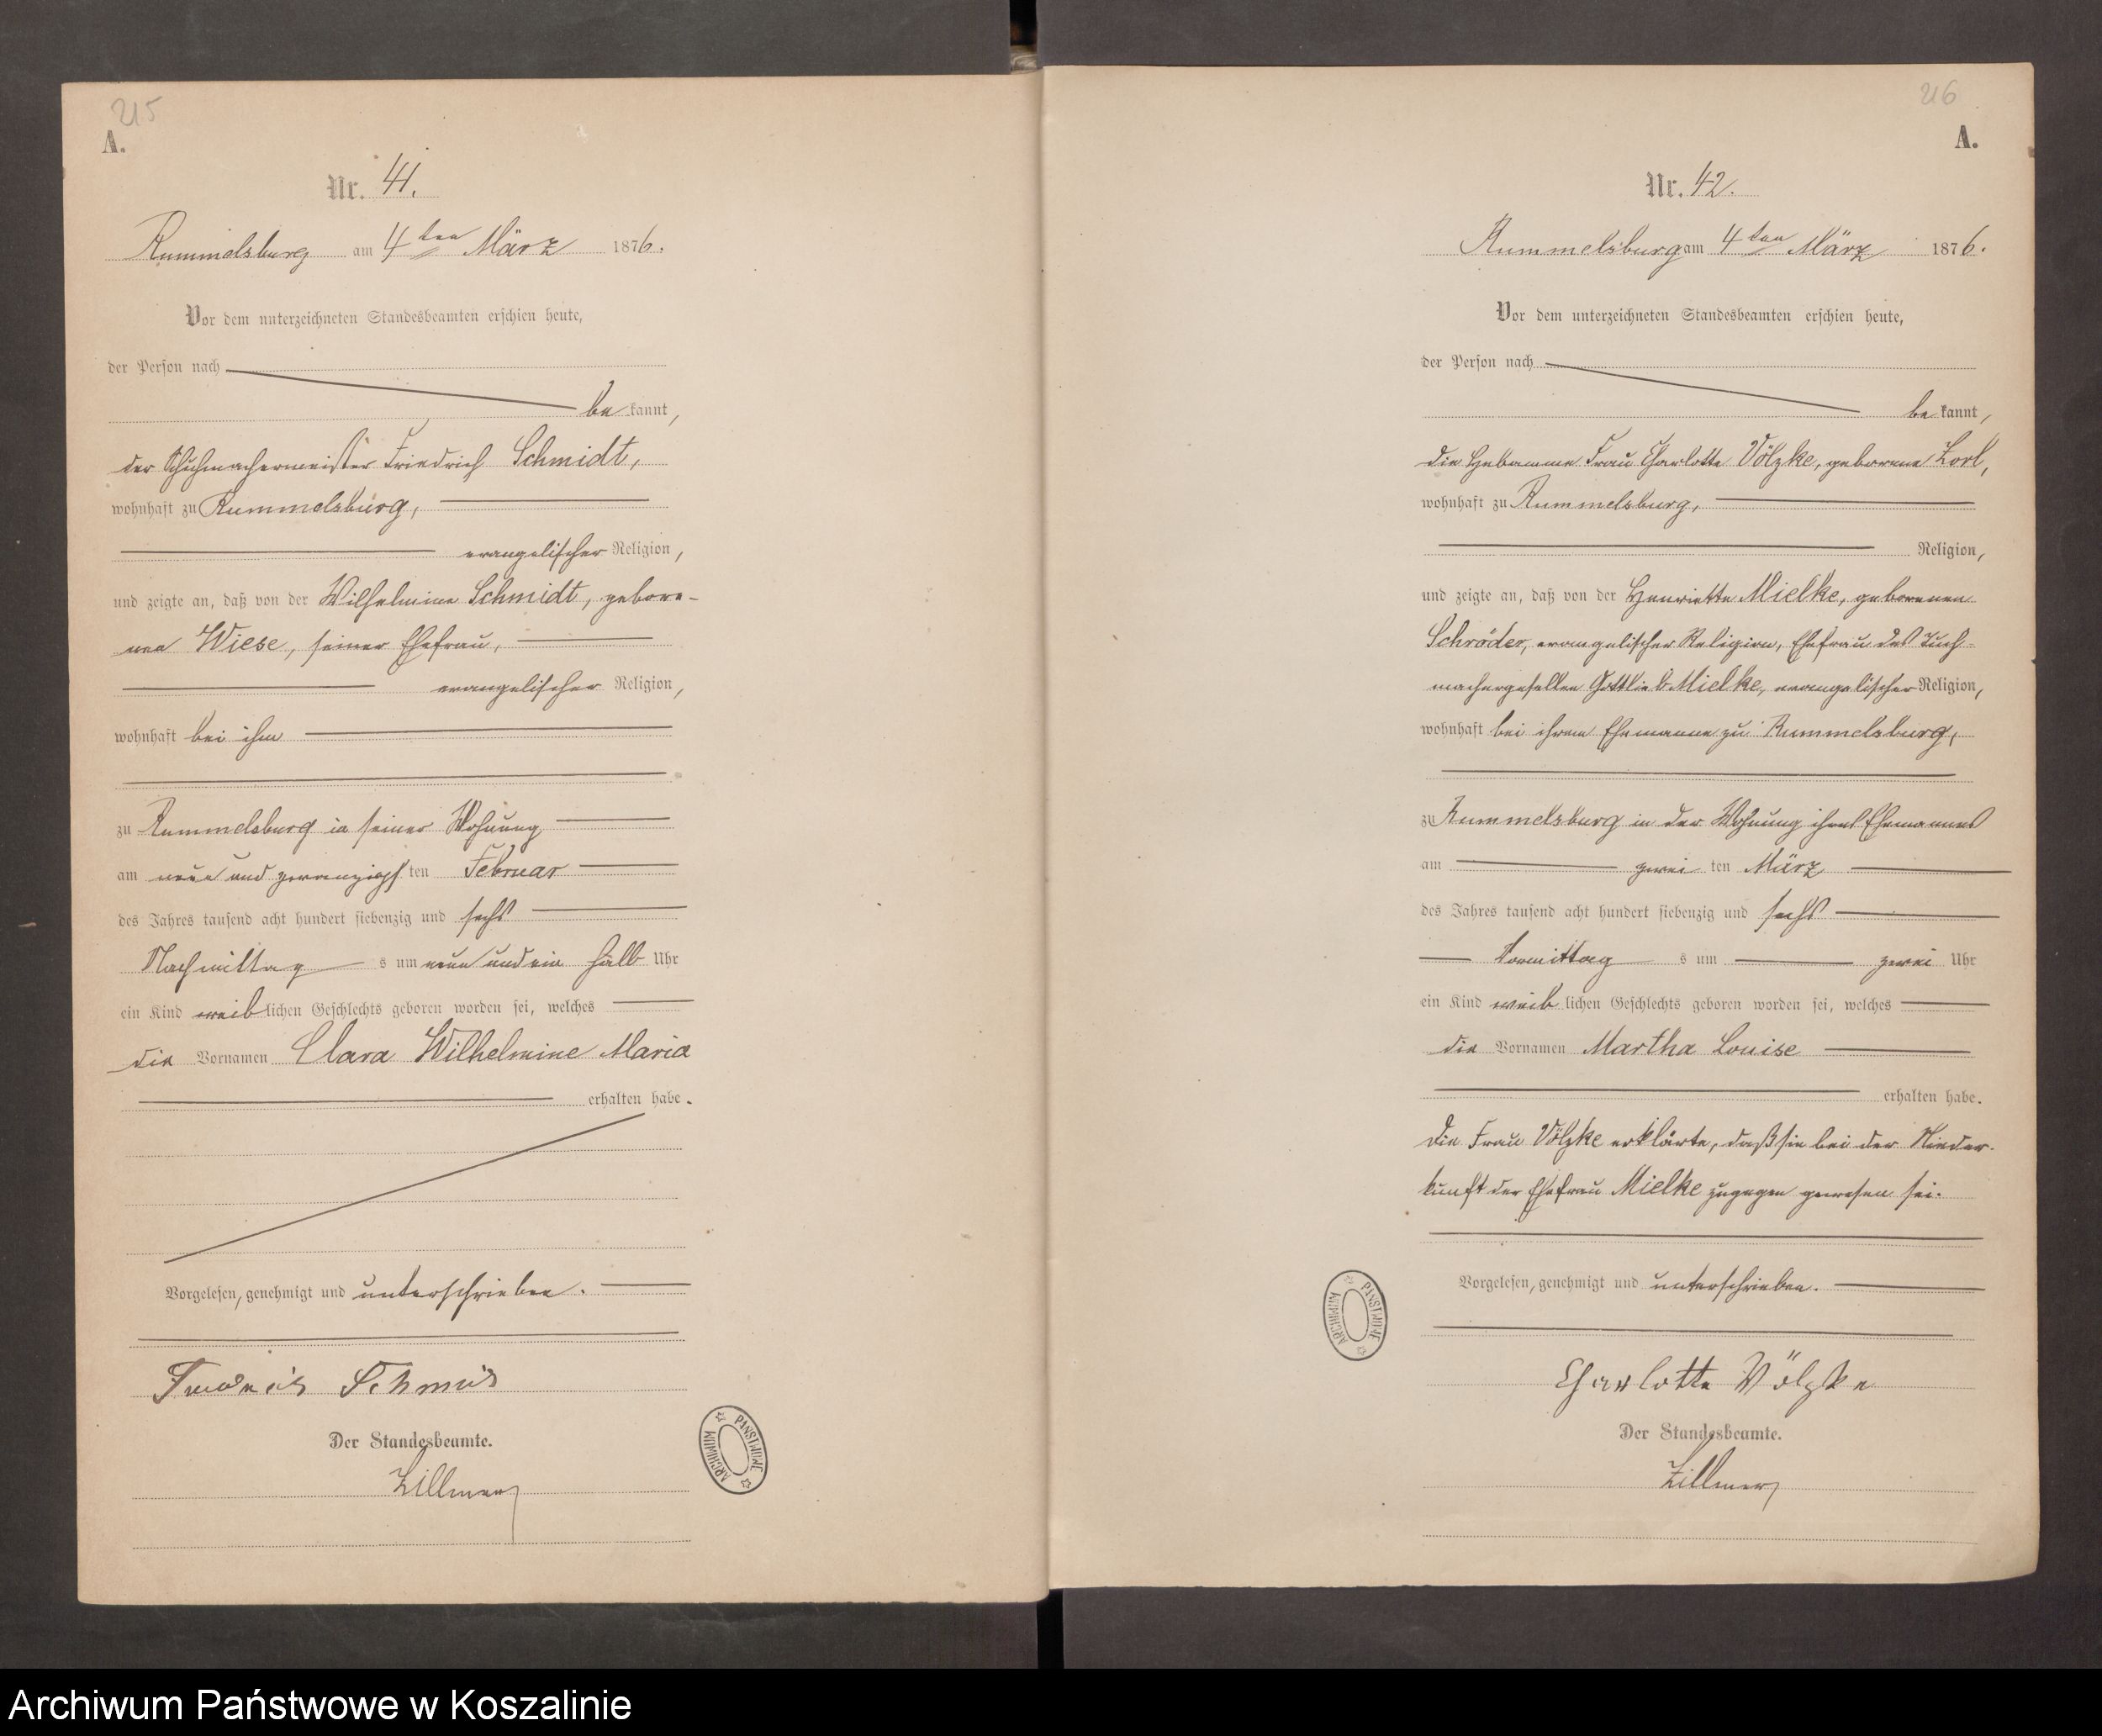 215
A.
Nr. 41.
Rummelsburg am 4ten März 1876.
Vor dem unterzeichneten Standesbeamten erschien heute,
der Person nach
bekannt,
der Schuhmachermeister Friedrich Schmidt,
wohnhaft zu Rummelsburg,
evangelischer Religion,
und zeigte an, daß von der Wilhelmine Schmidt, gebore-
nen Wiese, seiner Ehefrau,
evangelischer Religion,
wohnhaft bei ihm
zu Rummelsburg in seiner Wohnung
am neun und zwanzigsten Februar
des Jahres tausend acht hundert siebenzig und sechs
Nachmittags um neun und ein halb Uhr
ein Kind weiblichen Geschlechts geboren worden sei, welches
die Vornamen Clara Wilhelmine Maria
erhalten habe.
Vorgelesen, genehmigt und unterschrieben.
Friedrich Schmid
Der Standesbeamte.
Zillmer
ARCHIWUM PAŃSTWOWE
216
A.
Nr. 42.
Rummelsburg am 4ten März 1876.
Vor dem unterzeichneten Standesbeamten erschien heute,
der Person nach
bekannt,
die Hebamme Frau Charlotte Völzke, geborene
wohnhaft zu Rummelsburg,
Religion,
und zeigte an, daß von der Henriette Mielke, geborenen
Schröder, evangelischer Religion, Ehefrau des Tuch-
machergesellen Gottlieb Mielke, evangelischer Religion,
wohnhaft bei ihrem Ehemanne zu Rummelsburg,
zu Rummelsburg in der Wohnung ihres Ehemannes
am zweiten März
des Jahres tausend acht hundert siebenzig und sechs
Vormittags um zwei Uhr
ein Kind weiblichen Geschlechts geboren worden sei, welches
die Vornamen Martha Louise
erhalten habe.
Die Frau Völzke erklärte, daß sie bei der Nieder-
kunft der Ehefrau Mielke zugegen gewesen sei.
Vorgelesen, genehmigt und unterschrieben.
Charlotte Völzke
Der Standesbeamte.
Zillmer
ARCHIWUM PAŃSTWOWE
Archiwum Państwowe w Koszalinie